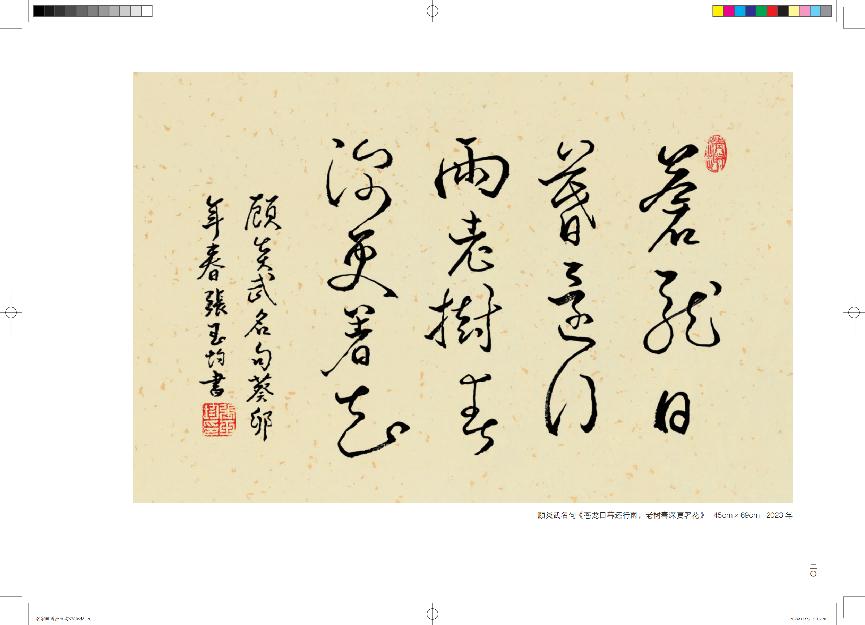 蒼龍日
暮還行
雨老樹春
深更著花
顾炎武名句癸卯
年春張玉均書
顾炎武名句《苍龙日暮还行雨，老树春深更著花》 45cm×69cm 2023年
二〇